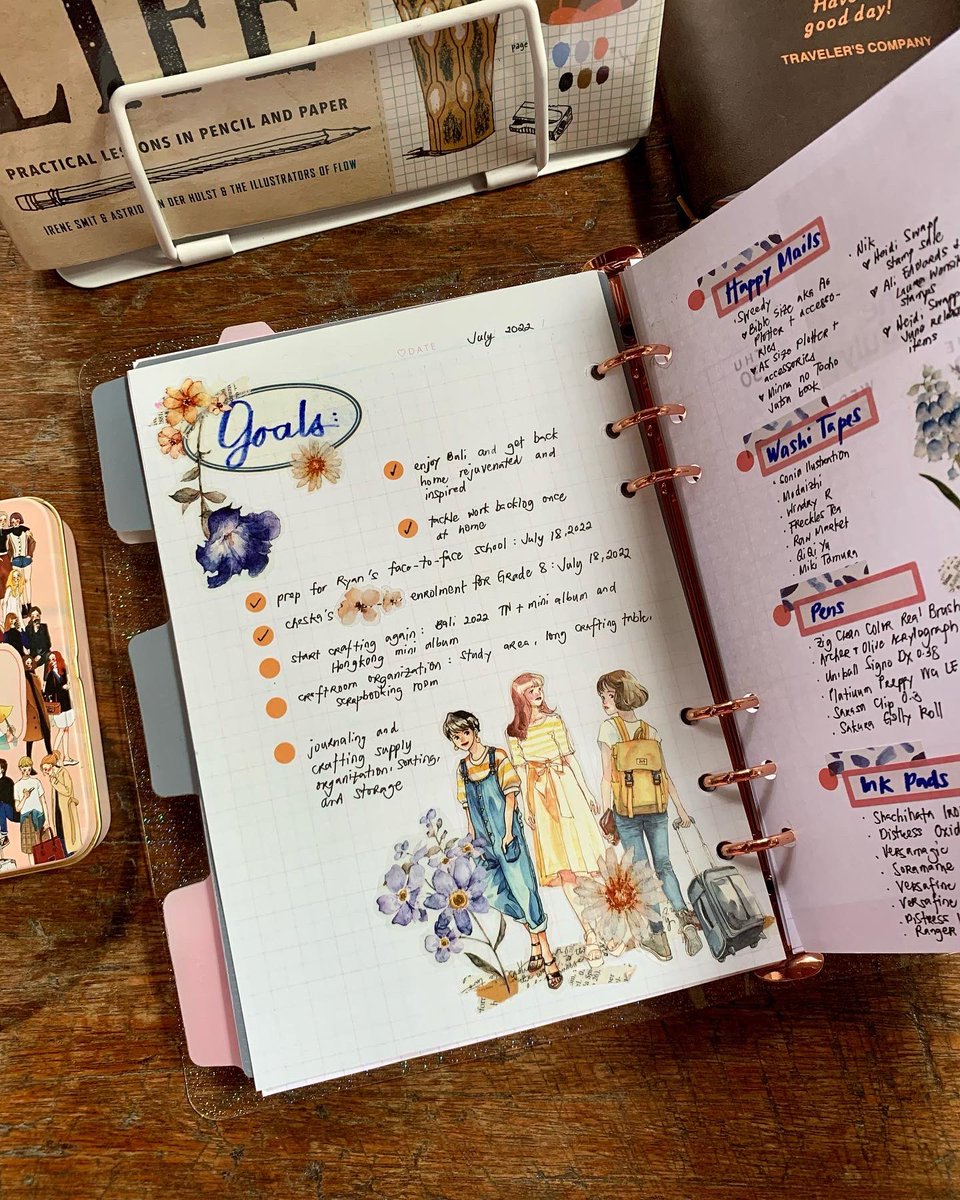 LIFE
PRACTICAL LESSONS IN PENCIL AND PAPER
IRENE SMIT & ASTRID DER HULST & THE ILLUSTRATORS OF FLOW
page
good day!
TRAVELER'S COMPANY
DATE
July 2022
Goals:
enjoy Bali and get back
home rejuvenated and
inspired
tackle work backlog once
at home
prep for Ryan's face-to-face school : July 18, 2022
cheska's enrolment for Grade 8 : July 18, 2022
start crafting again : Bali 2022 TN + mini album and
Hongkong mini album
craftroom organization : study area, long crafting table,
scrapbooking room
journaling and
crafting supply
organization, sorting,
and storage
Happy Mails
Speedy
♥ Bible size aka A6
Plotter + accesso-
ries
♥ A5 size plotter +
accessories
♥ Minna no Techo
Jutsu book
Nik
♥ Heidi Swapp
stamp sale
♥ Ali Edwards &
stamps
♥ Heidi Swapp
items
Washi Tapes
Sonia Illustration
Modaizhi
Windry R
Freckles Tea
Raw Market
QiQi Yu
Miki Tamura
Pens
Zig Clean Color Real Brush
Archer + Olive Acrylograph
Uniball Signo DX 0.38
Platinum Preppy
Sarasa Clip 0.3
Sakura Gelly Roll
Ink Pads
Shachihata
Distress Oxid
Versamagic
Versafine
Versafine
Distress
Ranger